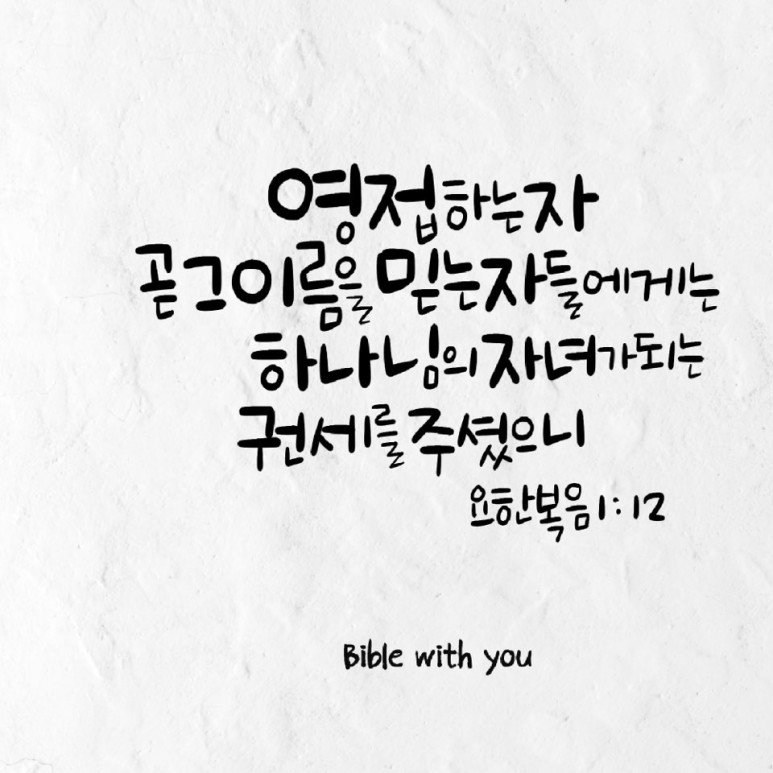 영접하는자
곧 그이름을 믿는자들에게는
하나님의 자녀가되는
권세를 주셨으니
요한복음 1:12
Bible with you